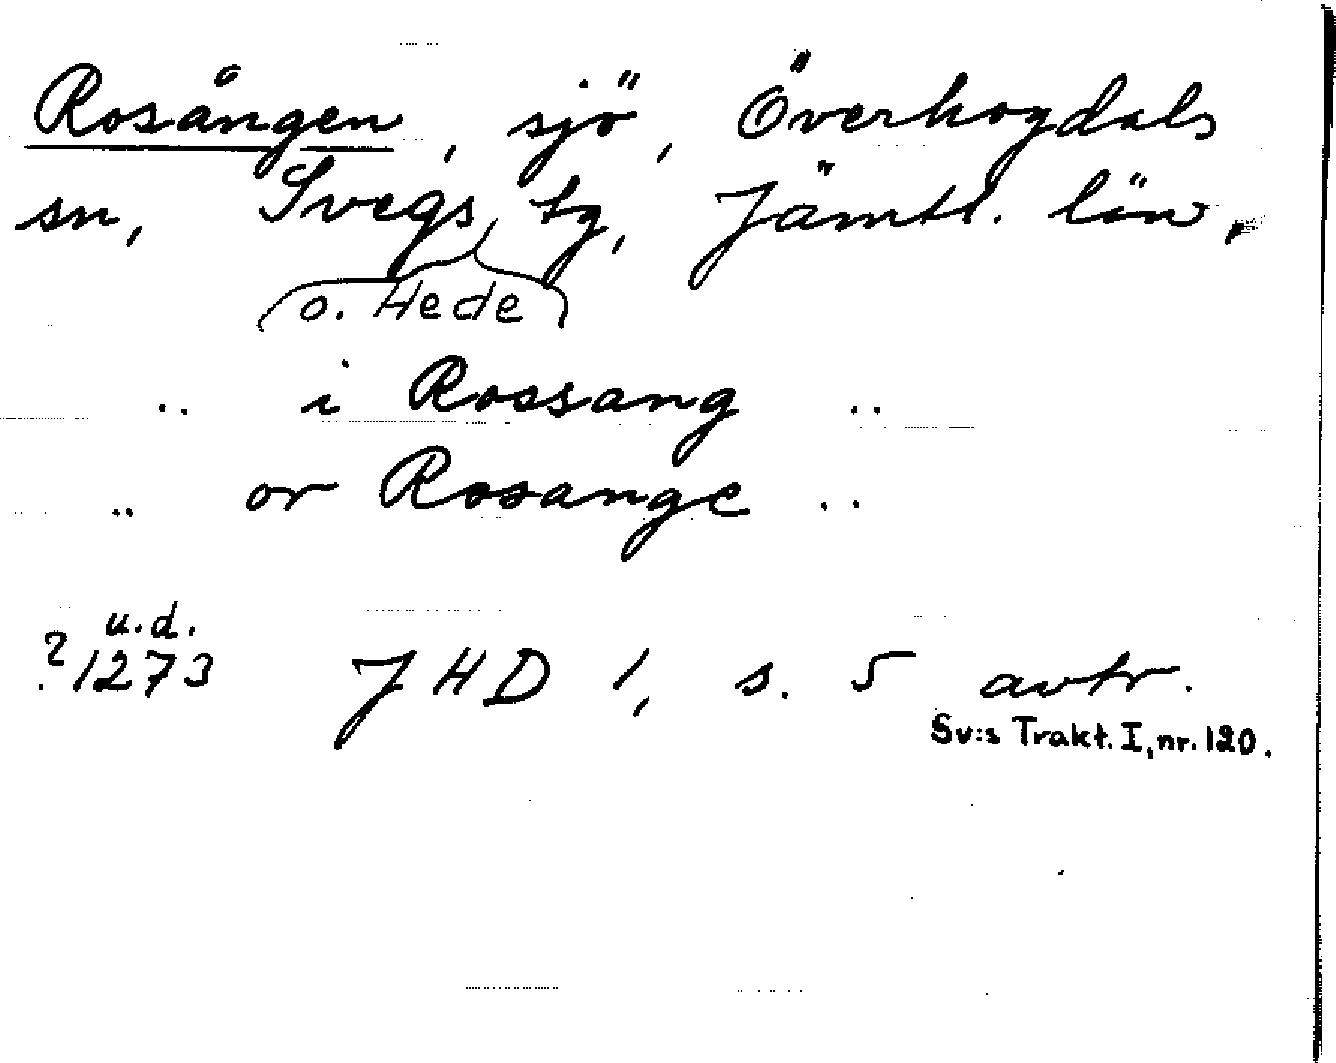 Rosången, sjö, Överhogdals
sn, Svegs tg, Jämtl. län,
o. Hede
.. i Rossang ..
.. or Rosange ..
u.d.
? 1273 JHD 1, s. 5 avtr.
Sv:s Trakt. I, nr. 120.